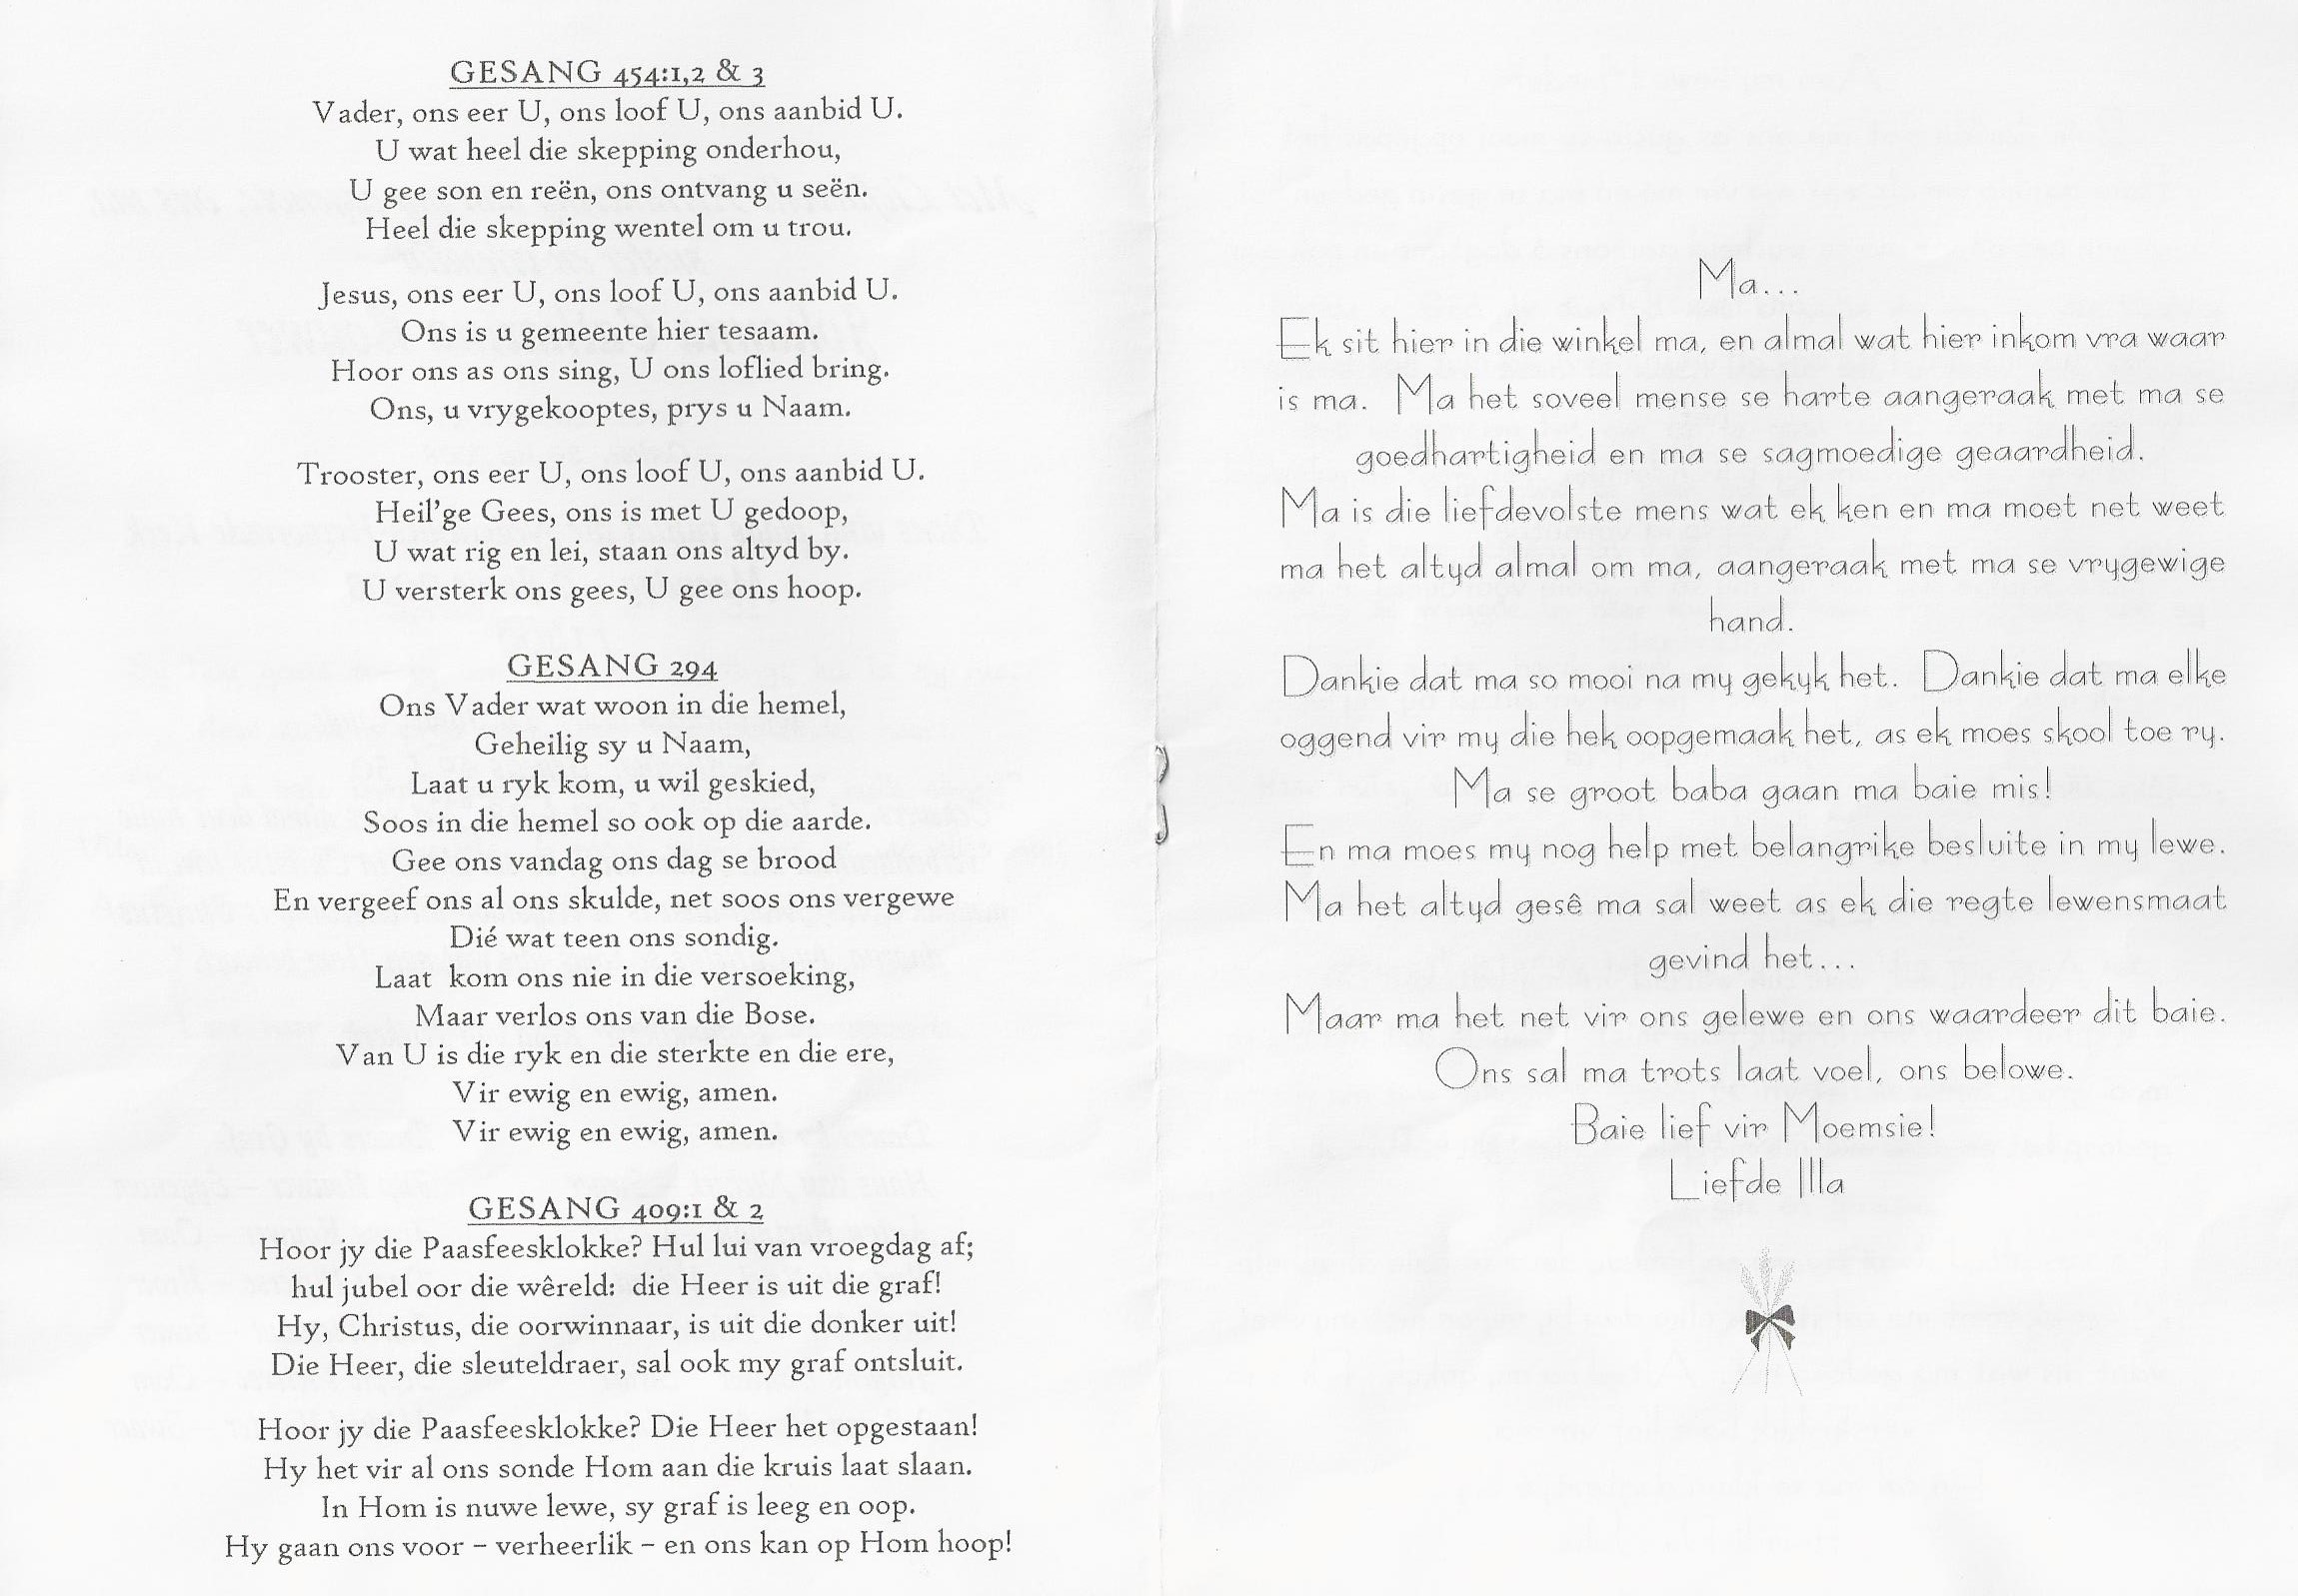 GESANG 454:1,2 & 3
Vader, ons eer U, ons loof U, ons aanbid U.
U wat heel die skepping onderhou,
U gee son en reën, ons ontvang u seën.
Heel die skepping wentel om u trou.
Jesus, ons eer U, ons loof U, ons aanbid U.
Ons is u gemeente hier tesaam.
Hoor ons as ons sing, U ons loflied bring.
Ons, u vrygekooptes, prys u Naam.
Trooster, ons eer U, ons loof U, ons aanbid U.
Heil’ge Gees, ons is met U gedoop,
U wat rig en lei, staan ons altyd by.
U versterk ons gees, U gee ons hoop.
GESANG 294
Ons Vader wat woon in die hemel,
Geheilig sy u Naam,
Laat u ryk kom, u wil geskied,
Soos in die hemel so ook op die aarde.
Gee ons vandag ons dag se brood
En vergeef ons al ons skulde, net soos ons vergewe
Dié wat teen ons sondig.
Laat kom ons nie in die versoeking,
Maar verlos ons van die Bose.
Van U is die ryk en die sterkte en die ere,
Vir ewig en ewig, amen.
Vir ewig en ewig, amen.
GESANG 409:1 & 2
Hoor jy die Paasfeesklokke? Hul lui van vroegdag af;
hul jubel oor die wêreld: die Heer is uit die graf!
Hy, Christus, die oorwinnaar, is uit die donker uit!
Die Heer, die sleuteldraer, sal ook my graf ontsluit.
Hoor jy die Paasfeesklokke? Die Heer het opgestaan!
Hy het vir al ons sonde Hom aan die kruis laat slaan.
In Hom is nuwe lewe, sy graf is leeg en oop.
Hy gaan ons voor – verheerlik – en ons kan op Hom hoop!
Ma...
Ek sit hier in die winkel ma, en almal wat hier inkom vra waar
is ma. Ma het soveel mense se harte aangeraak met ma se
goedhartigheid en ma se sagmoedige geaardheid.
Ma is die liefdevolste mens wat ek ken en ma moet net weet
ma het altyd almal om ma, aangeraak met ma se vrygewige
hand.
Dankie dat ma so mooi na my gekyk het. Dankie dat ma elke
oggend vir my die hek oopgemaak het, as ek moes skool toe ry.
Ma se groot baba gaan ma baie mis!
En ma moes my nog help met belangrike besluite in my lewe.
Ma het altyd gesê ma sal weet as ek die regte lewensmaat
gevind het...
Maar ma het net vir ons gelewe en ons waardeer dit baie.
Ons sal ma trots laat voel, ons belowe.
Baie lief vir Moemsie!
Liefde Illa